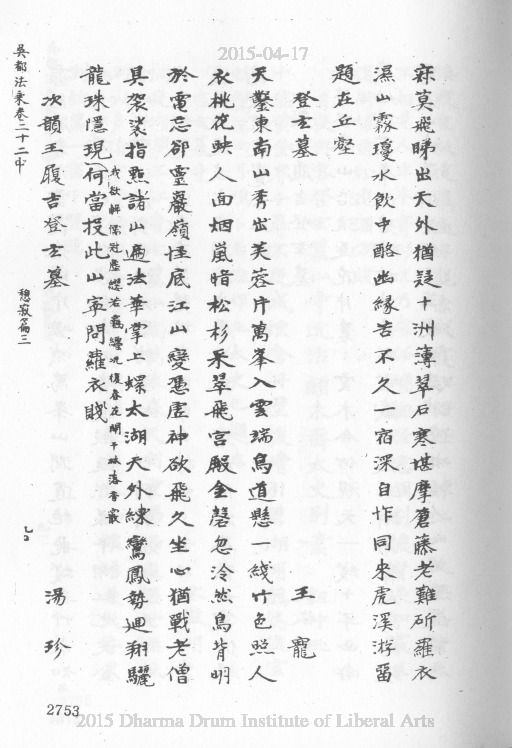 2015-04-17
寂莫飛睇出天外猶疑十洲薄翠石寒堪摩蒼藤老難斫羅衣
濕山霧瓊水飲中酪幽緣苦不久一宿深自怍同來虎溪游留
題在丘壑
登玄墓 王寵
天鑿東南山秀出芙蓉片萬峯入雲端鳥道懸一綫竹色照人
衣桃花映人面烟嵐暗松杉采翠飛宮殿金磬忽泠然鳥背明
於電忘卻靈巖嶺恠底江山變憑虛神欲飛久坐心猶戰老僧
具袈裟指點諸山遍法華掌上螺太湖天外練鸞鳳勢迴翔驪
龍珠隱現何當投此山寧問蘿衣賤
我欲解儒冠塵纓若羈纏況復春花開千林落香霰
次韻王履吉登玄墓 湯珍
吳都法乘卷二十二中 憩寂篇三
2753
2015 Dharma Drum Institute of Liberal Arts